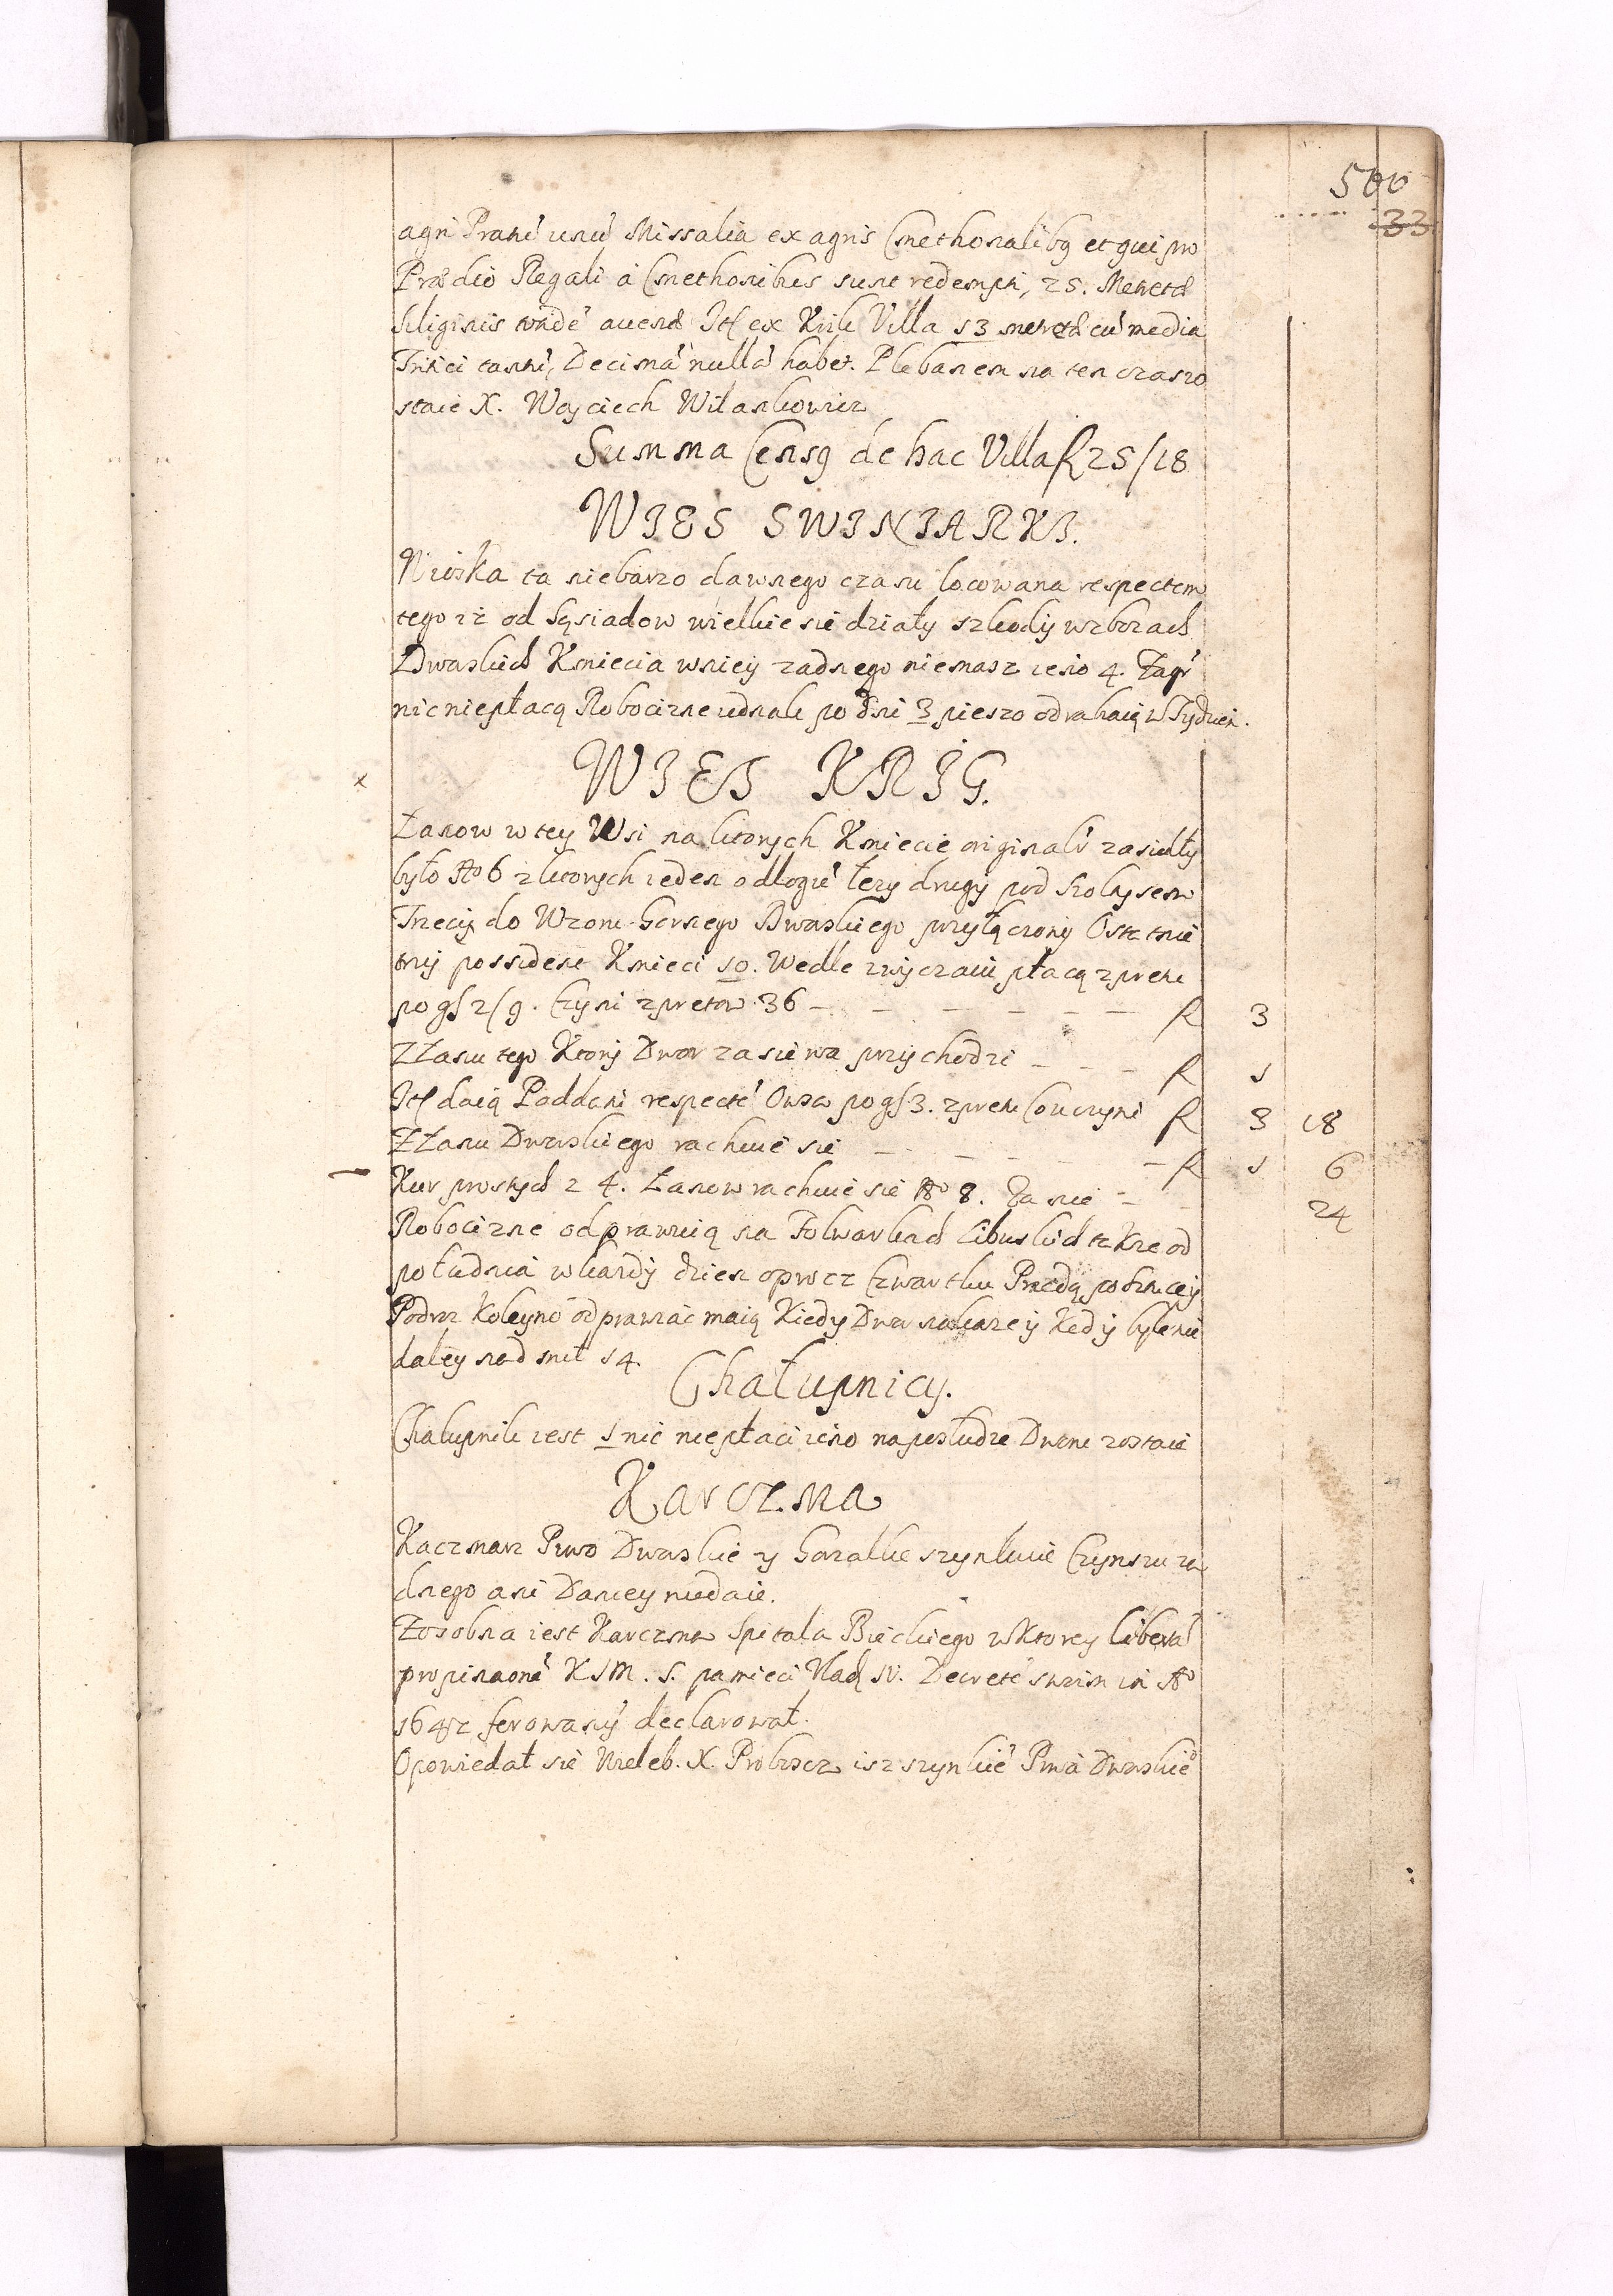 500
33
agri Prati unu Missalia ex agris Cmethonalibg et qui pro
Prædio Regali a Cmethonibus sunt redempti, 25. Metreta
siliginis totide avena It ex Krik Villa 13 metreta cu media
Tritici tanti, Decima nulla habet. Plebanem na ten czas zo
staie X. Woyciech Wilankowicz
Summa Censg de hac Villa f 25/18
WIES SWINIARKI.
Wioska ta niebarzo dawnego czasu locowana respectem
tego iż od Sąsiadow wielkie się działy szkody w zbożach
Dworskich Kmiecia w niey żadnego niemasz ieno 4. Zagr
nic niepłacą Robocizne iednak po dni 3 pieszo odrabaią w Tydzien.
WIES KRIG.
x
Łanow w tey Wsi na ktorych Kmiecie originali zasiedły
było No 6 z ktorych ieden odłogie leży drugi pod
Trzeci do Dworskiego przyłączony Ostatnie
trzy possident Kmieci 10. Wedle zwyczaiu płacą z preta
po gs 2/9. Czyni z pretow 36 - - - - - - f 3
Z Łanu tego Ktory Dwor zasiewa przychodzi - - - f 1
It daią Poddani respecte Owsa po gs 3. z preta Co uczyni f 3 18
Z Łanu Dworskiego rachuie się - - - - f 1 6
Kur prostych z 4. Łanow rachuie się No 8. Za nie - - 24
Robocizne odprawuią na Folwarkach Libuskich także od
południa w każdy dzien oprocz Czwartku Przedą po Sztucey
Podroz Koleyno odprawiać maią Kiedy Dwor rozkaze y Kedy byle nie
daley nad mil 14.
Chałupnicy.
Chałupnik iest 1 nic niepłaci ieno na posłudze Dworu zostaie
Karczma
Kaczmarz Piwo Dworskie y Gorzałke szynkuie Czynszu ża
dnego ani Daniey niedaie.
Zosobna iest Karczma Spitala Bieckiego w Ktorey libera
propinaone K J M. S. pamieci Wlad IV. Decrete swoim in Ao
1642 ferowany declarowal.
Opowiedał się Wieleb. X. Proboscz isz szynkuie Piwa Dworskie